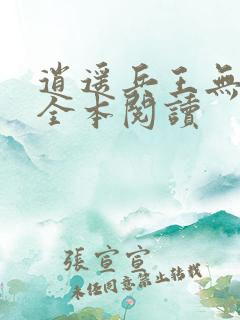 逍遥兵王無
全本閱讀
張宣宣
未经同意禁止转载